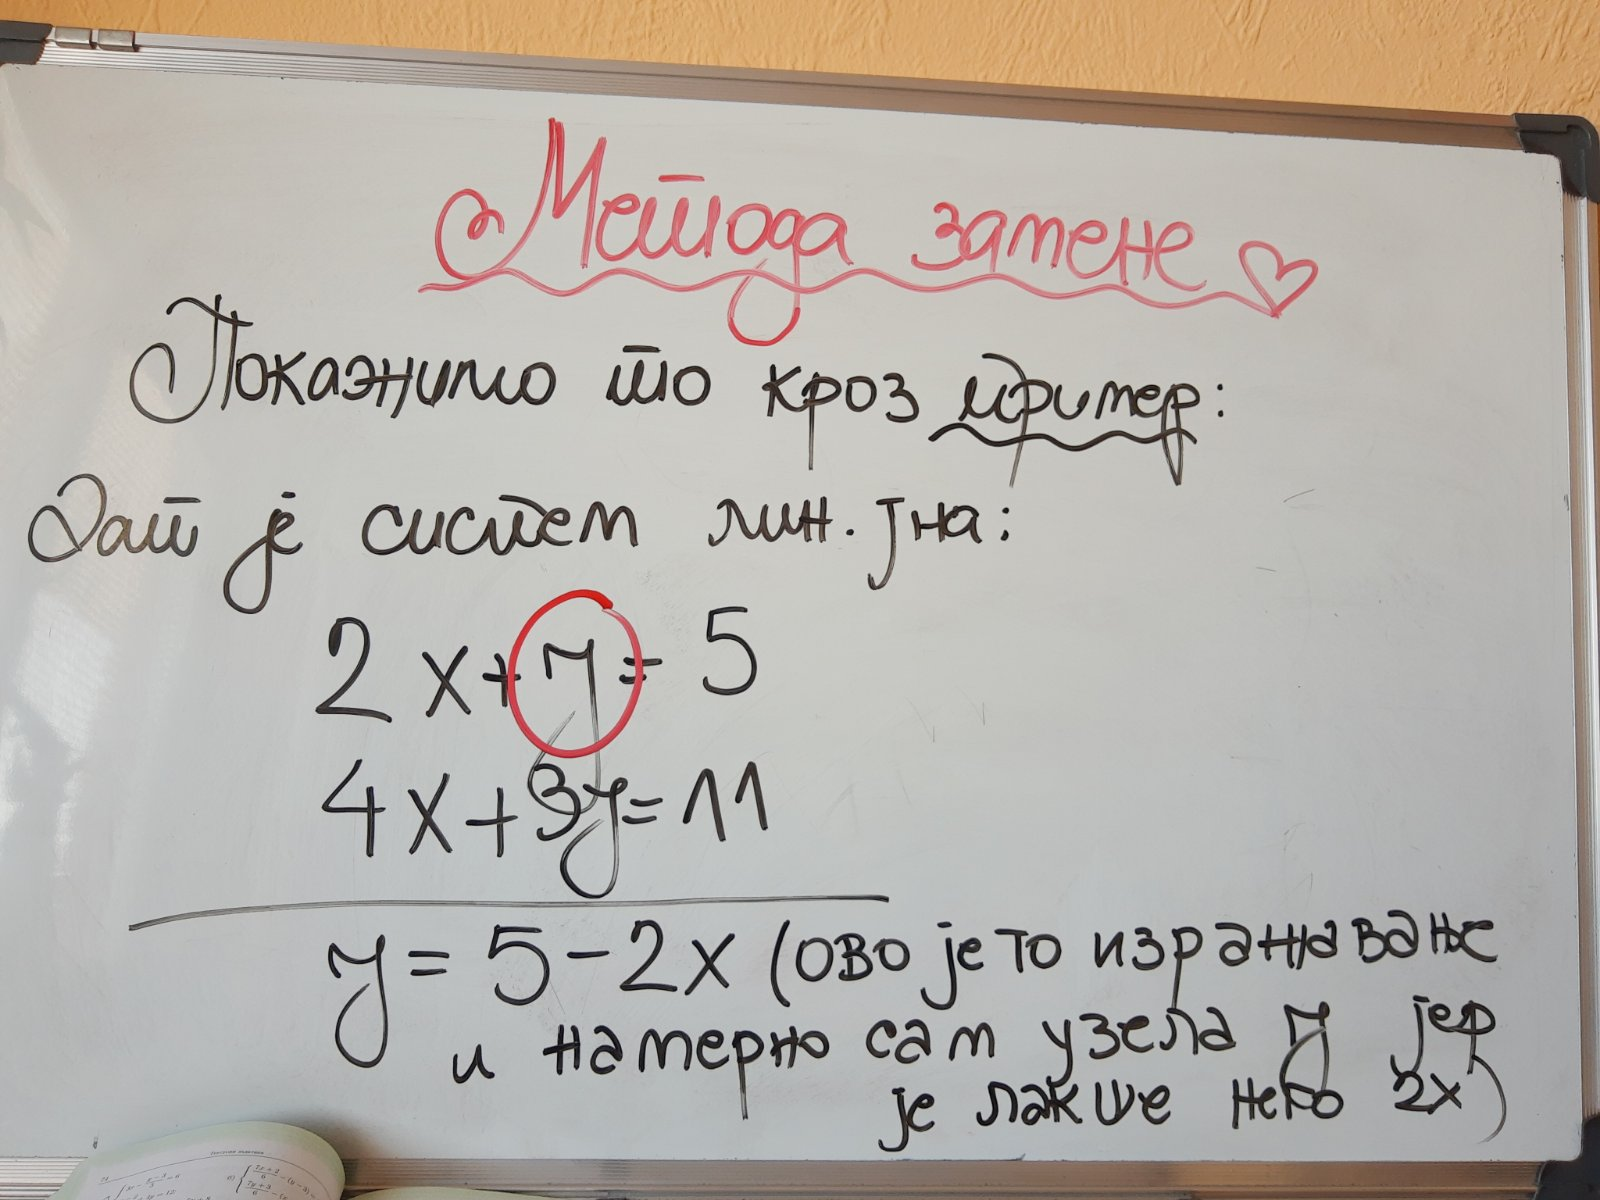 Метода замене
Покажимо то кроз пример:
Дат је систем лин. јна:
2x+y=5
4x+3y=11
y=5-2x (ово је то изражавање
и намерно сам узела y јер
је лакше него 2x)